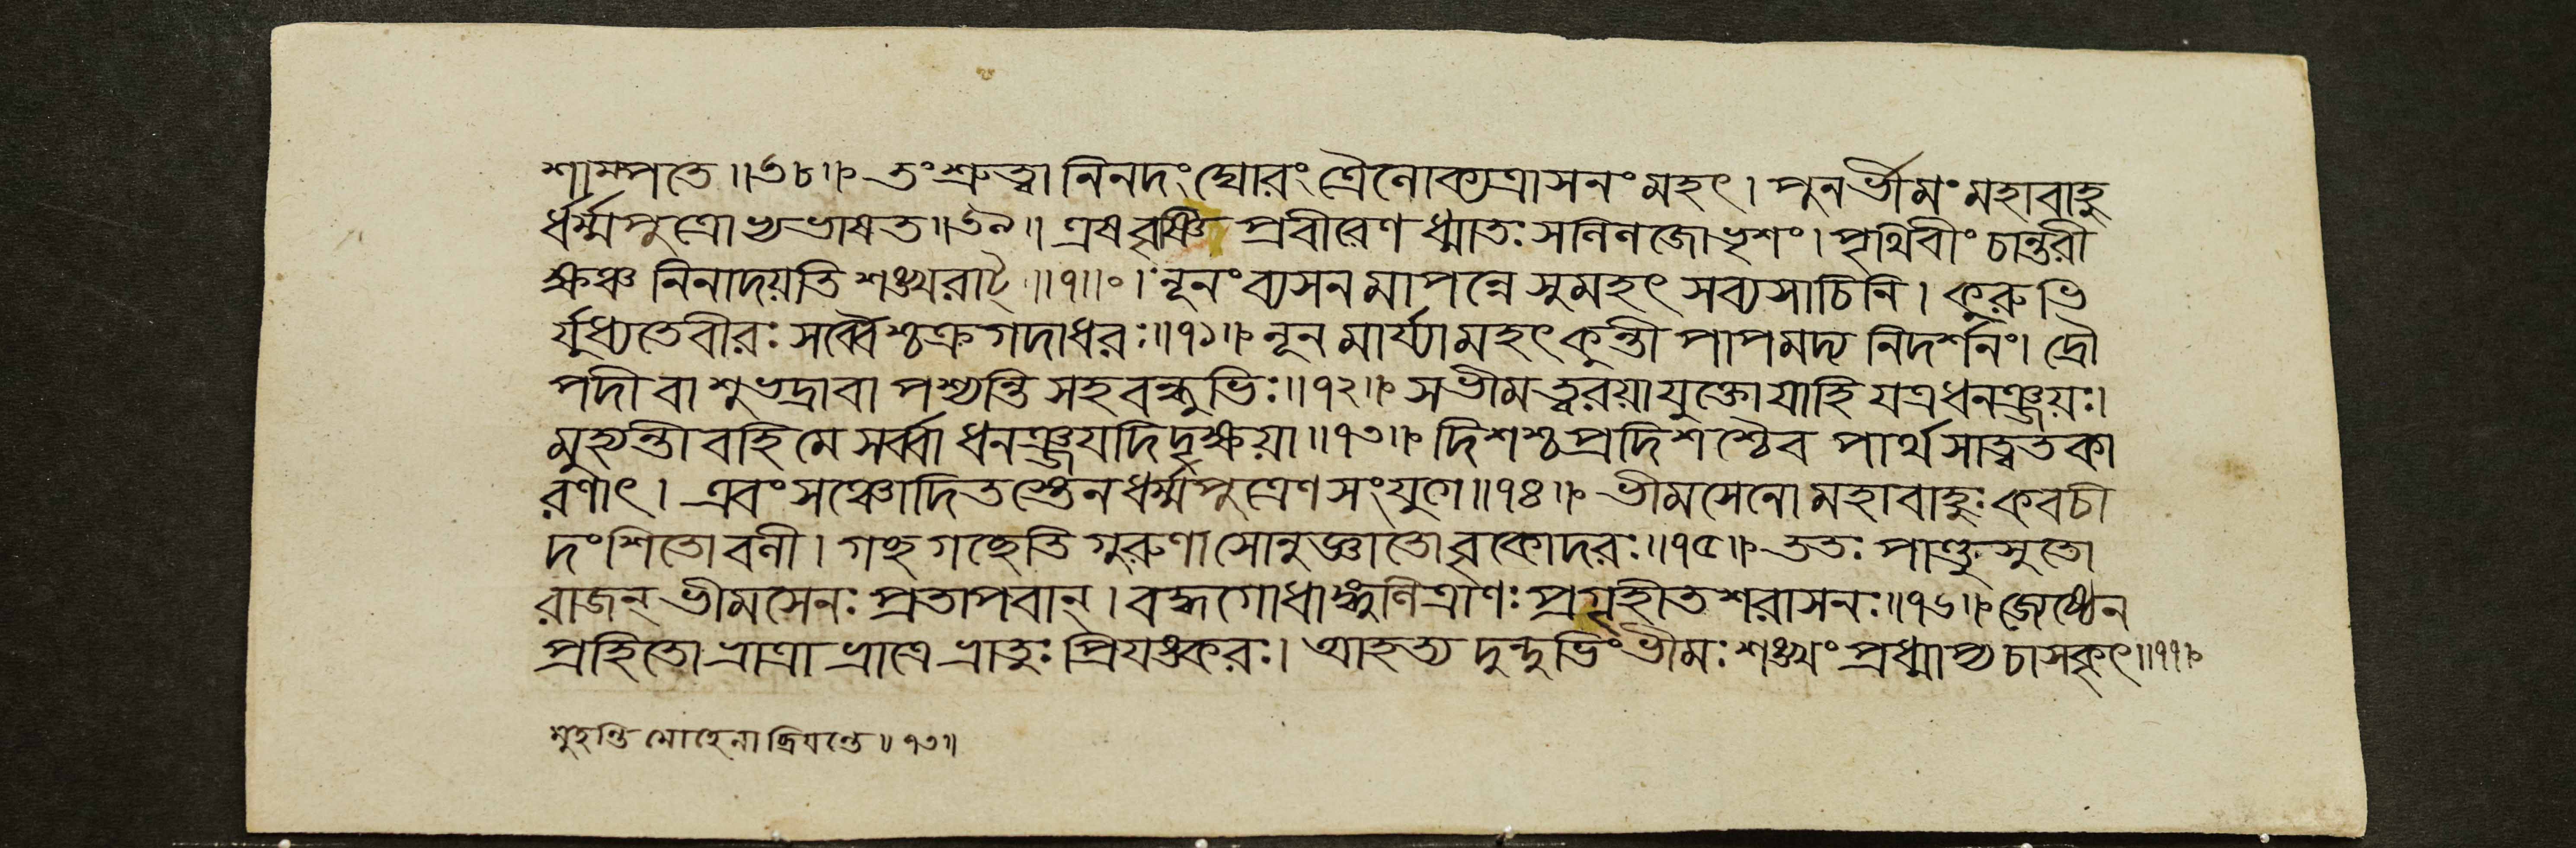 শাম্পতে ॥ ৬৮ ॥ তং শ্রুত্বা নিনদং ঘোরং ত্রৈলোক্যত্রাসনং মহৎ । পুনর্ভীমং মহাবাহু
র্ধর্ম্মপুত্রোভ্যভাষত ॥ ৬৯ ॥ এষ বৃষ্ণি প্রবীরেণ ধ্মাতঃ সলিলজো ভৃশং । পৃথিবীং চান্তরী
ক্ষঞ্চ নিনাদয়তি শঙ্খরাট্ ॥ ৭০ ॥ নূনং ব্যসনমাপন্নে সুমহৎ সব্যসাচিনি । কুরুভি
র্যুধ্যতে বীরঃ সর্ব্বৈশ্চক্রগদাধরঃ ॥ ৭১ ॥ নূনমার্য্যা মহৎ কুন্তী পাপমদ্য নিদর্শনং । দ্রৌ
পদী বা শুভদ্রা বা পশ্যন্তি সহ বন্ধুভিঃ ॥ ৭২ ॥ স ভীম ত্বরয়া যুক্তো যাহি যত্র ধনঞ্জয়ঃ ।
মুহ্যন্তীব হি মে সর্ব্বা ধনঞ্জয়দিদৃক্ষয়া ॥ ৭৩ ॥ দিশশ্চ প্রদিশশ্চৈব পার্থসাত্বতকা
রণাৎ । এবং সঞ্চোদিতস্তেন ধর্ম্মপুত্রেণ সংযুগে ॥ ৭৪ ॥ ভীমসেনো মহাবাহুঃ কবচী
দংশিতো বলী । গচ্ছ গচ্ছেতি গুরুণা সোনুজ্ঞাতো বৃকোদরঃ ॥ ৭৫ ॥ ততঃ পাণ্ডুসুতো
রাজন্ ভীমসেনঃ প্রতাপবান্ । বদ্ধগোধাঙ্গুলিত্রাণঃ প্রগৃহীতশরাসনঃ ॥ ৭৬ ॥ জ্যেষ্ঠেন
প্রহিতো ভ্রাত্রা ভ্রাত্রে ভ্রাতুঃ প্রিয়ঙ্করঃ । আহত্য দুন্দুভিং ভীমঃ শঙ্খং প্রধ্মাপ্য চাসকৃৎ ॥ ৭৭ ॥
মুহ্যন্তি মোহেনা ॥ ৭৩ ॥